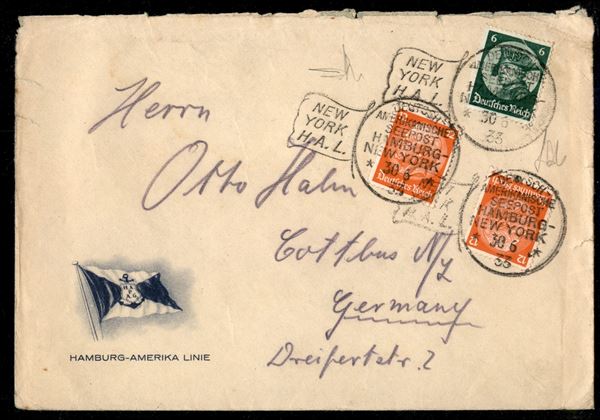 NEW
YORK
H.A.L.
6 6
Deutsches Reich
30 6
33
NEW
YORK
H.A.L.
DEUTSCH
AMERIKANISCHE
SEEPOST
HAMBURG-
NEW YORK
* 30 6 *
33
Deutsches Reich
AMERIKANISCHE
SEEPOST
HAMBURG-
NEW YORK
* 30 6 *
33
12
H.A.L.
Herrn
Otto Hahn
Cottbus N/
Germany
HAMBURG-AMERIKA LINIE